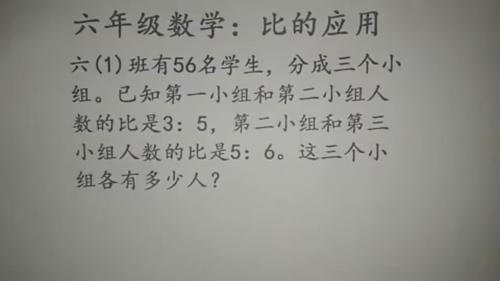 六年级数学：比的应用
六(1)班有56名学生，分成三个小
组。已知第一小组和第二小组人
数的比是3：5，第二小组和第三
小组人数的比是5：6。这三个小
组各有多少人？